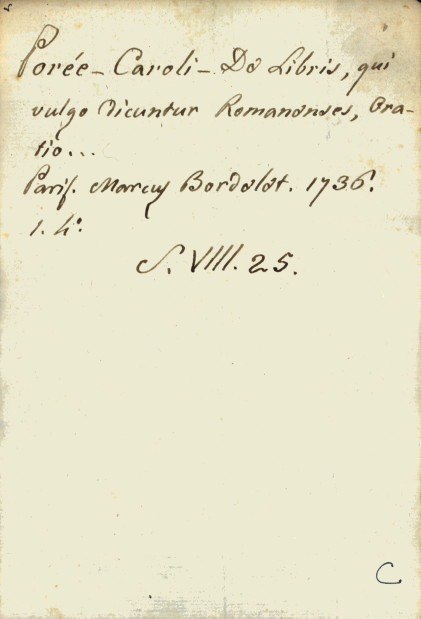 Porée - Caroli - De Libris, qui
vulgo dicuntur Romanenses, Ora-
tio...
Paris. Marcus Bordelet. 1736.
1. 4º.
S. VIII. 25.
C